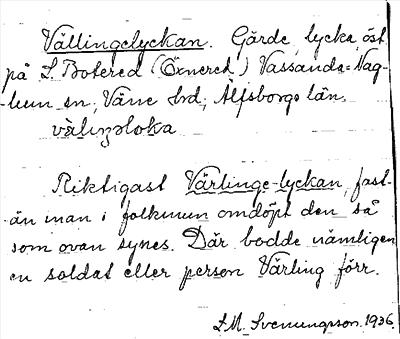 Vällingelyckan. Gärde, lycka, öst
på S. Botered (Öxnered) Vassända=Nag-
lum sn, Väne hd, Älfsborgs län.
vàliŋəloka
Riktigast Värlinge-lyckan, fast-
än man i folkmun omdöpt den så
som ovan synes. Där bodde nämligen
en soldat eller person Värling förr.
S.M. Svenungsson. 1936.